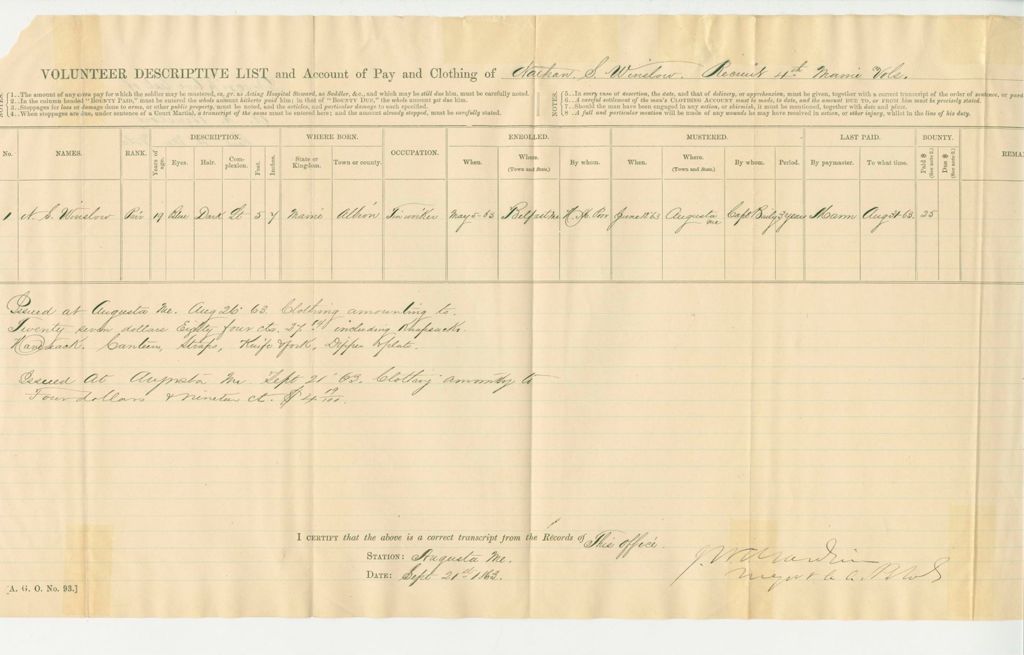 VOLUNTEER DESCRIPTIVE LIST and Account of Pay and Clothing of Nathan S. Winslow. Recruit 4th Maine Vols.
NOTES.
1..The amount of any extra pay for which the soldier may be mustered, ex. gr. as Acting Hospital Steward, as Saddler, &c., and which may be still due him, must be carefully noted.
2..In the column headed "BOUNTY PAID," must be entered the whole amount hitherto paid him; in that of "BOUNTY DUE," the whole amount yet due him.
3..Stoppages for loss or damage done to arms, or other public property, must be noted, and the articles, and particular damage to each specified.
4..When stoppages are due, under sentence of a Court Martial, a transcript of the same must be entered here; and the amount already stopped, must be carefully stated.
NOTES.
5..In every case of desertion, the date, and that of delivery, or apprehension, must be given, together with a correct transcript of the order of sentence, or pard
6..A careful settlement of the man's CLOTHING ACCOUNT must be made, to date, and the amount DUE TO, or FROM him must be precisely stated.
7..Should the man have been engaged in any action, or skirmish, it must be mentioned, together with date and place.
8..A full and particular mention will be made of any wounds he may have received in action, or other injury, whilst in the line of his duty.
DESCRIPTION. WHERE BORN. ENROLLED. MUSTERED. LAST PAID. BOUNTY.
No. NAMES. RANK. Years of age. Eyes. Hair. Complexion. Feet. Inches. State or Kingdom. Town or county. OCCUPATION. When. Where. (Town and State.) By whom. When. Where. (Town and State.) By whom. Period. By paymaster. To what time. Paid $ (See note 2.) Due $ (See note 2.) REMA
1 N. S. Winslow Priv 19 Blue Dark Lt 5 7 Maine Albion Tin worker May 5 63 Belfast Me June 63 Augusta Me Capt 3 years Mann Aug 31 63. 25
Issued at Augusta Me. Aug 26 63. Clothing amounting to.
Twenty seven dollars Eighty four cts. including Knapsack.
Haversack. Canteen, Straps, Knife & fork, Dipper & plate.
Issued At Augusta Me Sept 21 63. Clothing amounting to
Four dollars & nineteen ct. $ 4 19/100.
I CERTIFY that the above is a correct transcript from the Records of This office.
STATION: Augusta Me.
DATE: Sept 21st 1863.
[A. G. O. No. 93.]